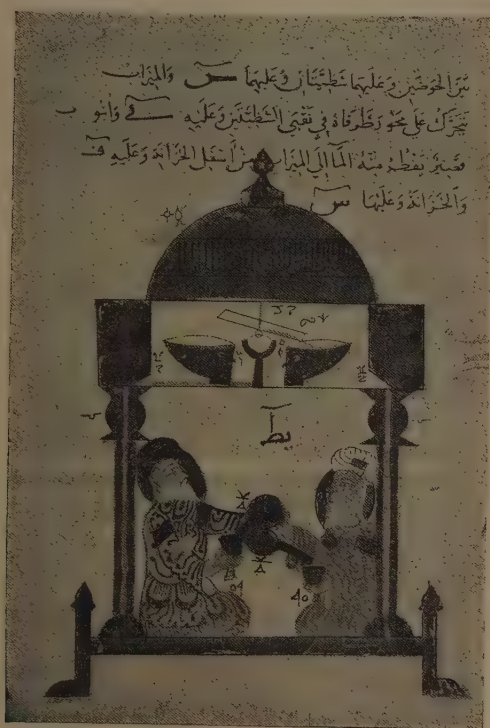 بين الحوضين وعليهما شظيتان وعليهما والميزاب
يتحرك على محور طرفاه في ثقبي الشظيتين وعليه وانبوب
قصير يقطر منه الما الى الميزاب من اسفل الخزانة وعليه ف
والخزانة وعليها س
يط